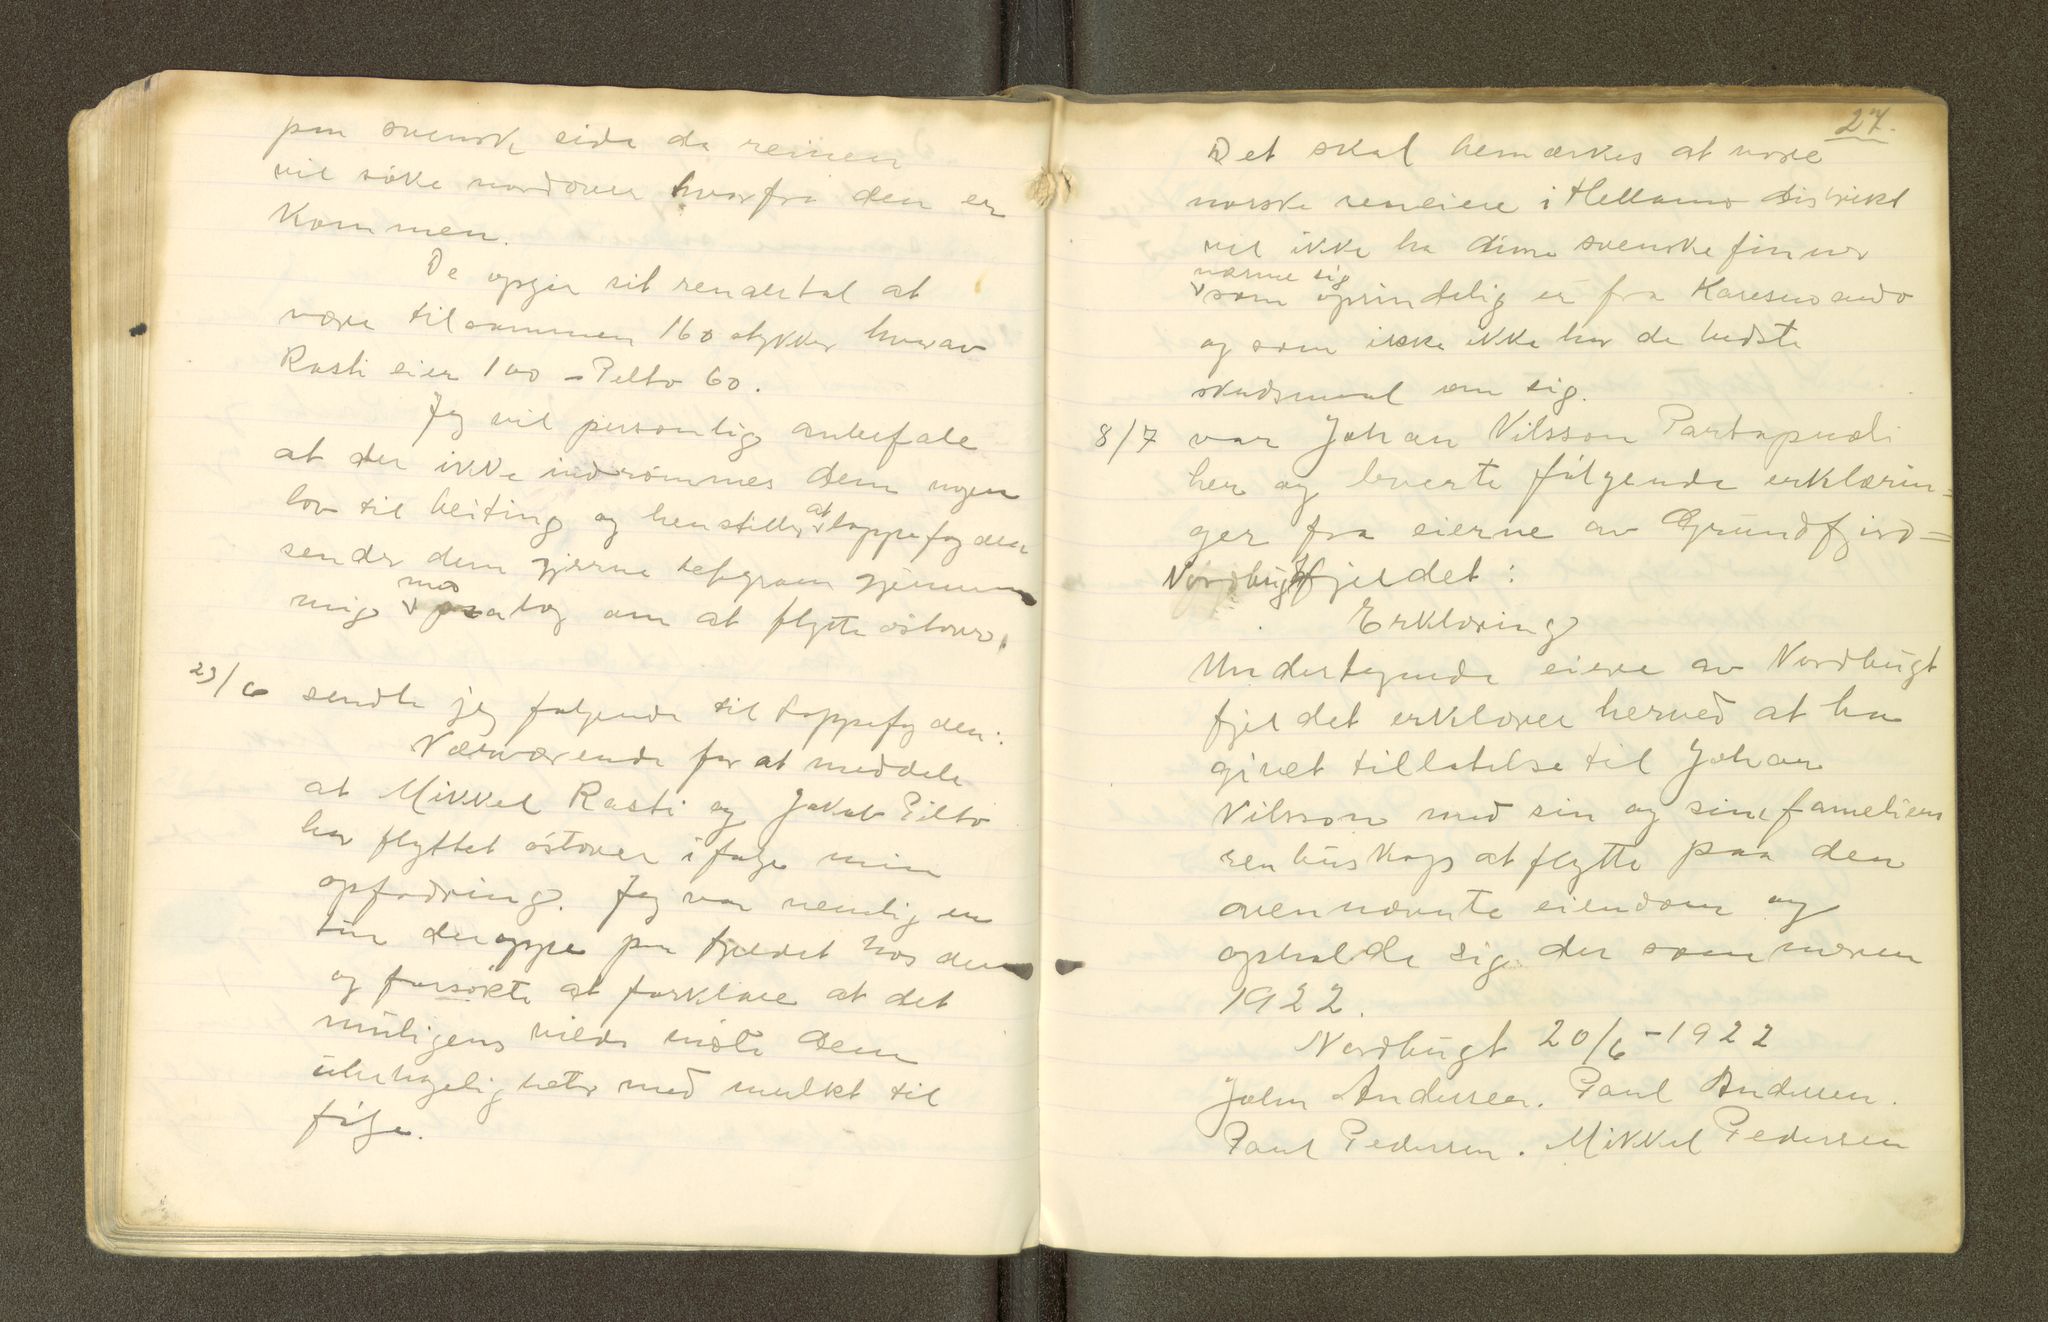 paa svensk side da reinen
vil söke nordover hvorfra den er
kommen.
De opgir sit renantal at
være tilsammen 160 stykker hvorav
Rasti eier 100 - Pelto 60.
Jeg vil personlig anbefale
at der ikke indrömmes dem nogen
lov til beiting og henstiller at lappefogden
sender dem gjerne telegram gjennem
mig med paatog om at flytte östover.
23/6 sendte jeg følgende til Lappefogden:
Nærværende for at meddele
at Mikkel Rasti og Jakob Pilto
har flyttet östover i følge min
opfordring. Jeg var nemlig en
tur deroppe paa fjeldet hos dem
og forsökte at forklare at det
muligens vilde möte dem
ubehageligheter med mulkt til
følge.
27.
Det skal bemærkes at vore
norske reneiere i Hellamo distrikt
vil ikke ha disse svenske finner
nærme sig
som oprindelig er fra Karesuando
og som ikke har de bedste
skudsmaal om sig.
8/7 var Johan Nilsson Partapuoli
her og leverte følgende erklærin=
ger fra eierne av Grundfjord=
Nordbugtfjeldet:
Erklæring
Undertegnede eiere av Nordbugt
fjeldet erklærer herved at ha
givet tillatelse til Johan
Nilsson med sin og sine fameliers
renbuskap at flytte paa den
ovennævnte eiendom og
opholde sig der sommeren
1922.
Nordbugt 20/6 - 1922
John Andersen. Paul Andersen.
Paul Pedersen. Mikkel Pedersen